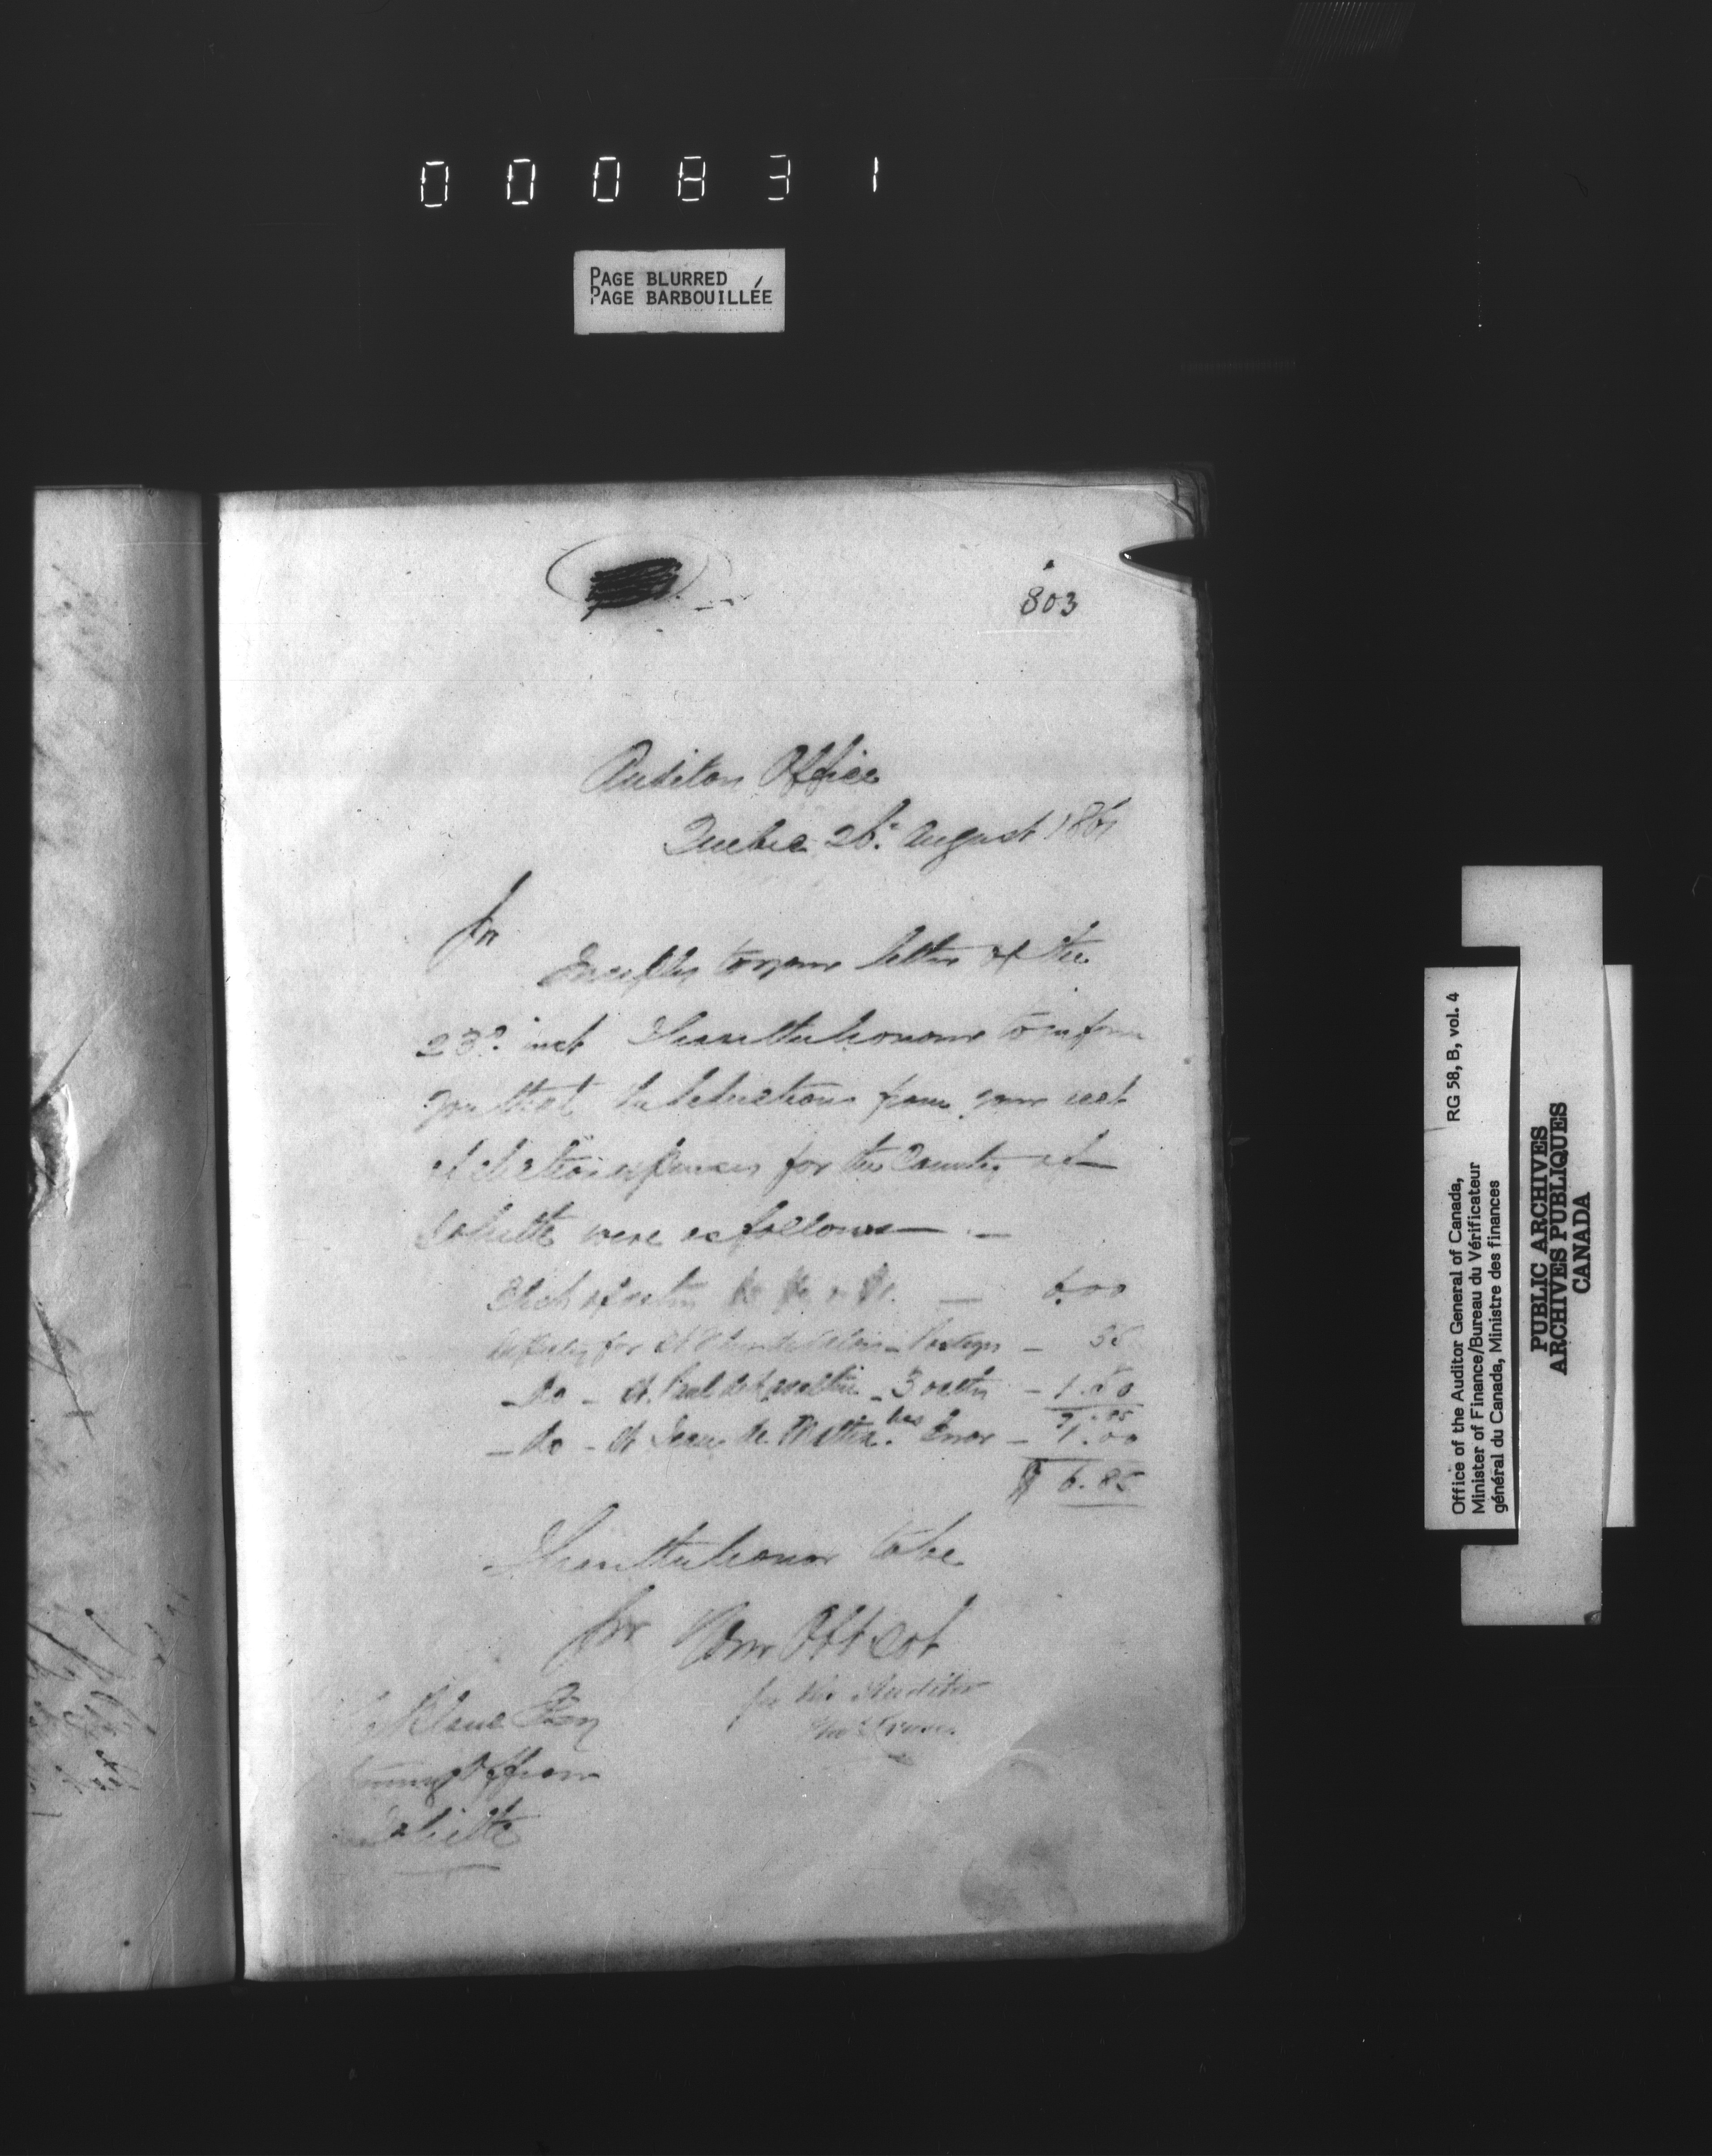 000831
PAGE BLURRED
PAGE BARBOUILLÉE
803
Auditors Office
Quebec 26. August 1861
Sir
In reply to your letter of the
23d. inst I have the honour to inform
you that the deductions from your acct
of election expenses for the County of
Joliette were as follows —
6.00
Deputy for St — Postage — 35
— Do — St. Paul de Lavaltrie — 3 oaths — 1.50
7.85
— do — St Jean de Matha. less Error — 1.00
$ 6.85
I have the honor to be
Sir Your Obt Sert
for the Auditor
Officer
Joliette
RG 58, B, vol. 4
Office of the Auditor General of Canada,
Minister of Finance/Bureau du Vérificateur
général du Canada, Ministre des finances
PUBLIC ARCHIVES
ARCHIVES PUBLIQUES
CANADA